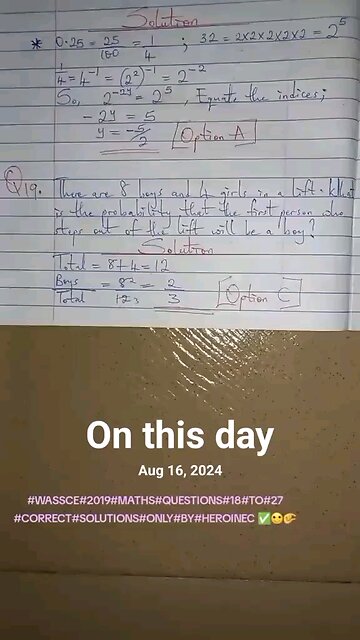 Solution
* 0.25 = 25/100 = 1/4 ; 32 = 2x2x2x2x2 = 2^5
1/4 = 4^-1 = (2^2)^-1 = 2^-2
So, 2^-2y = 2^5 , Equate the indices;
- 2y = 5
y = -5/2 Option A
Q19. There are 8 boys and 4 girls in a lift. What
is the probability that the first person who
steps out of the lift will be a boy?
Solution
Total = 8+4 = 12
Boys/Total = 8²/12₃ = 2/3 Option C
On this day
Aug 16, 2024
#WASSCE#2019#MATHS#QUESTIONS#18#TO#27
#CORRECT#SOLUTIONS#ONLY#BY#HEROINEC ✅